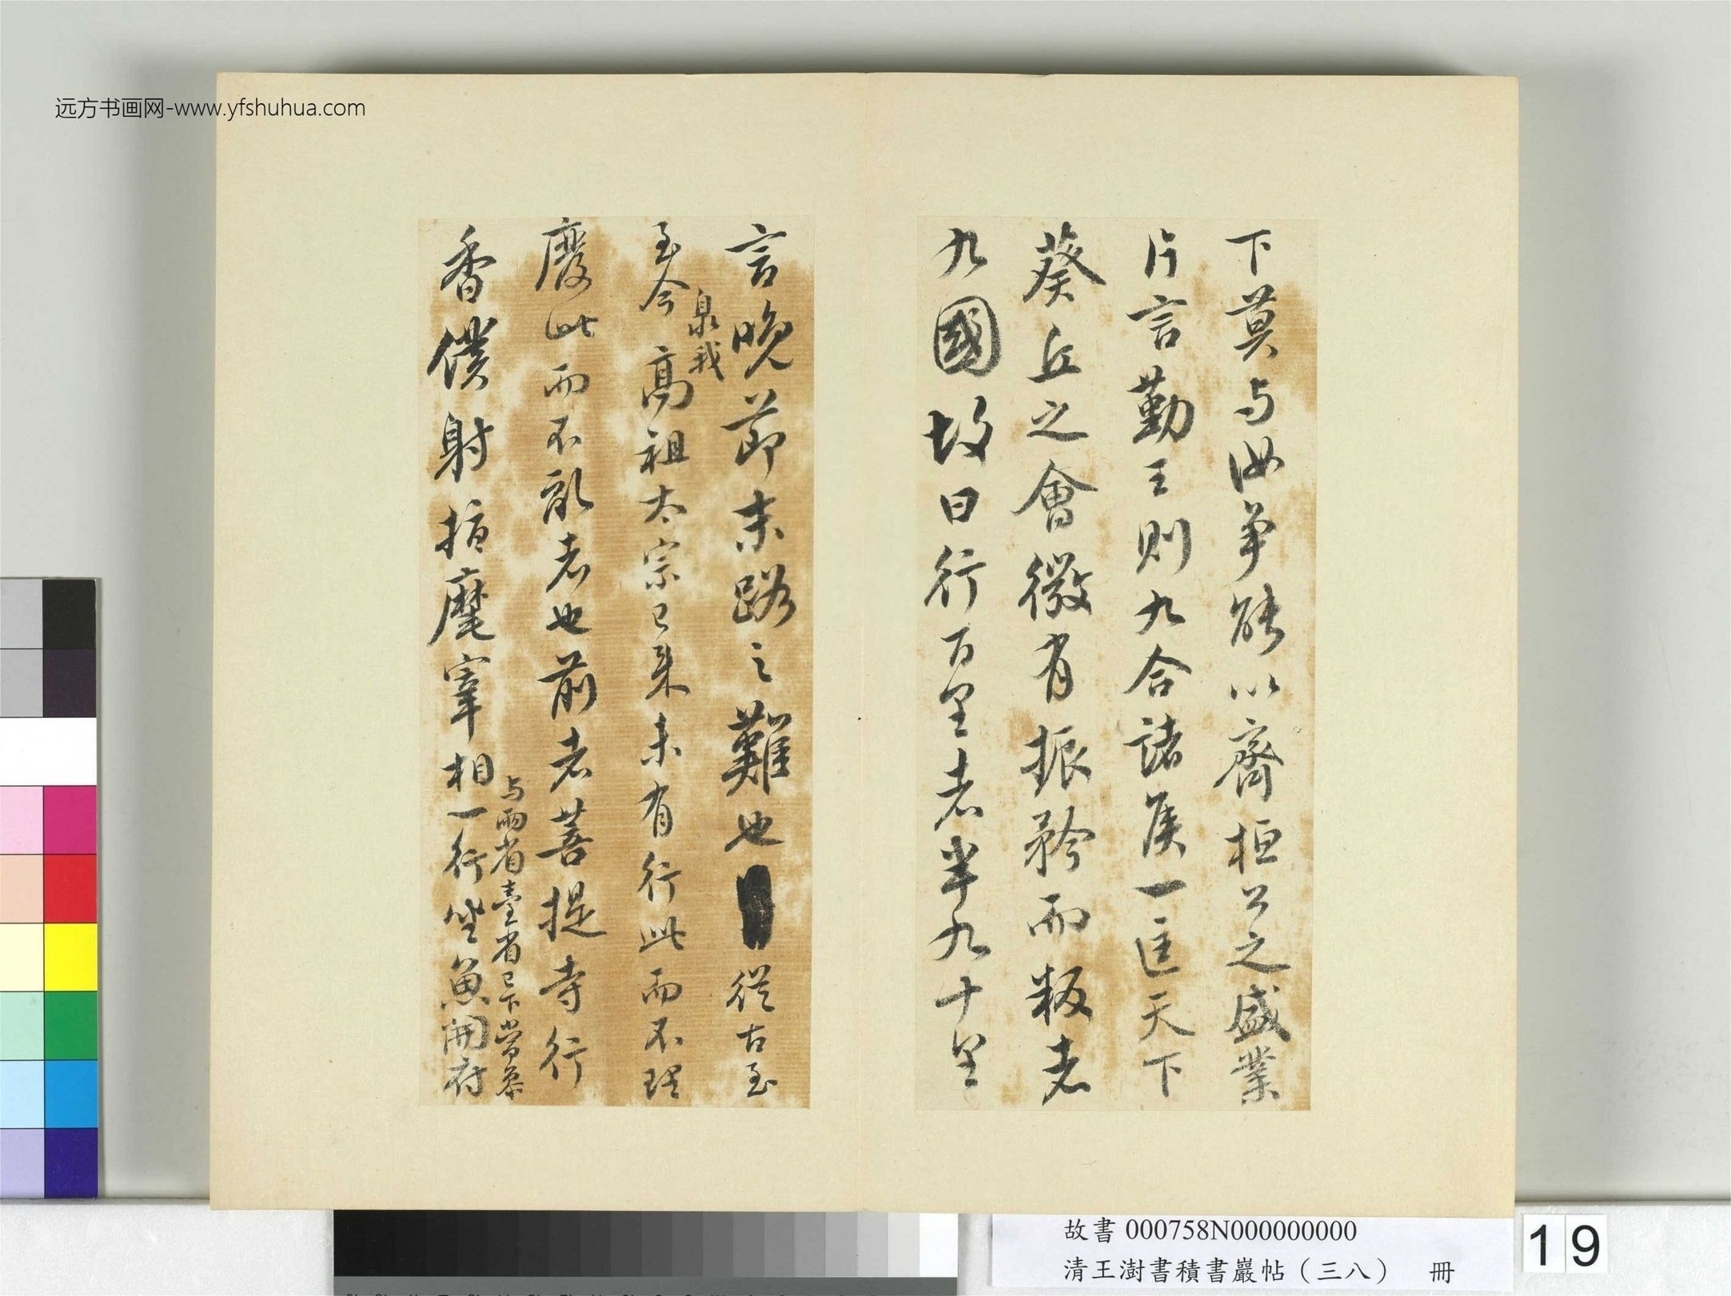 远方书画网-www.yfshuhua.com
下莫与汝争能以齊桓公之盛業
片言勤王則九合諸侯一匡天下
葵丘之會微有振矜而叛者
九國故曰行百里者半九十里
言晚節末路之難也從古至
泉我
至今高祖太宗已來未有行此而不理
廢此而不亂者也前者菩提寺行
与两省臺省已下常参
香僕射指麾宰相一行坐魚開府
故書 000758N000000000
清王澍書積書巖帖（三八） 冊
19